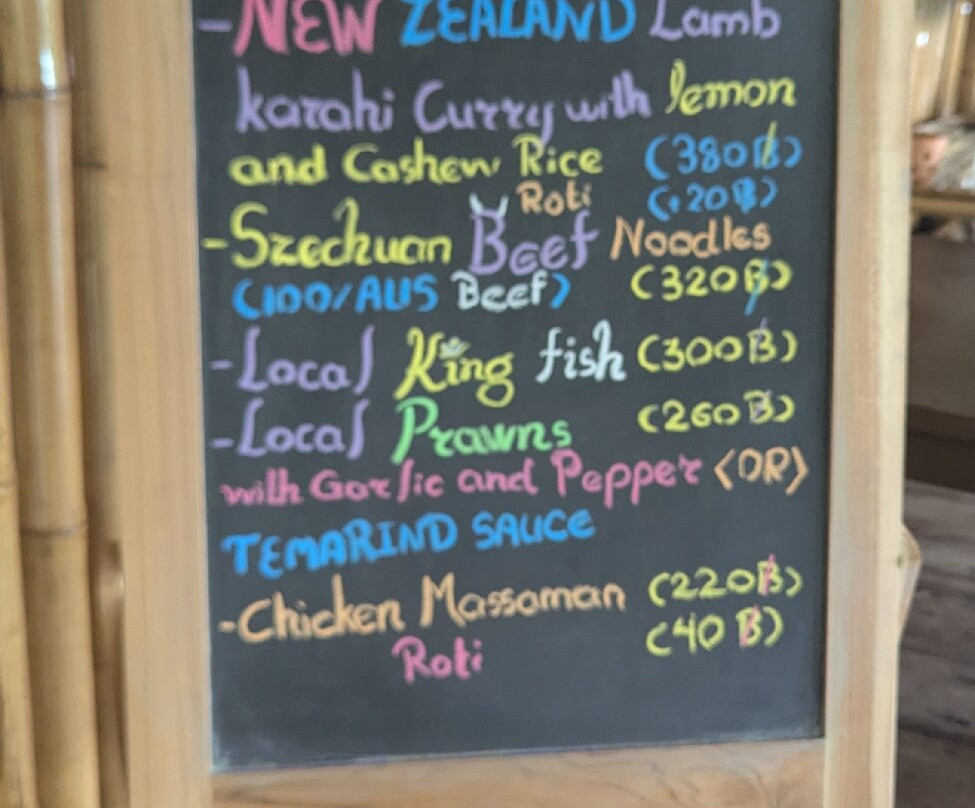 - NEW ZEALAND Lamb
karahi Curry with lemon
and Cashew Rice (380฿)
Roti (+20฿)
- Szechuan Beef Noodles
(100% AUS Beef) (320฿)
- Local King fish (300฿)
- Local Prawns (260฿)
with Garlic and Pepper <OR)
TEMARIND SAUCE
- Chicken Massaman (220฿)
Roti (40฿)